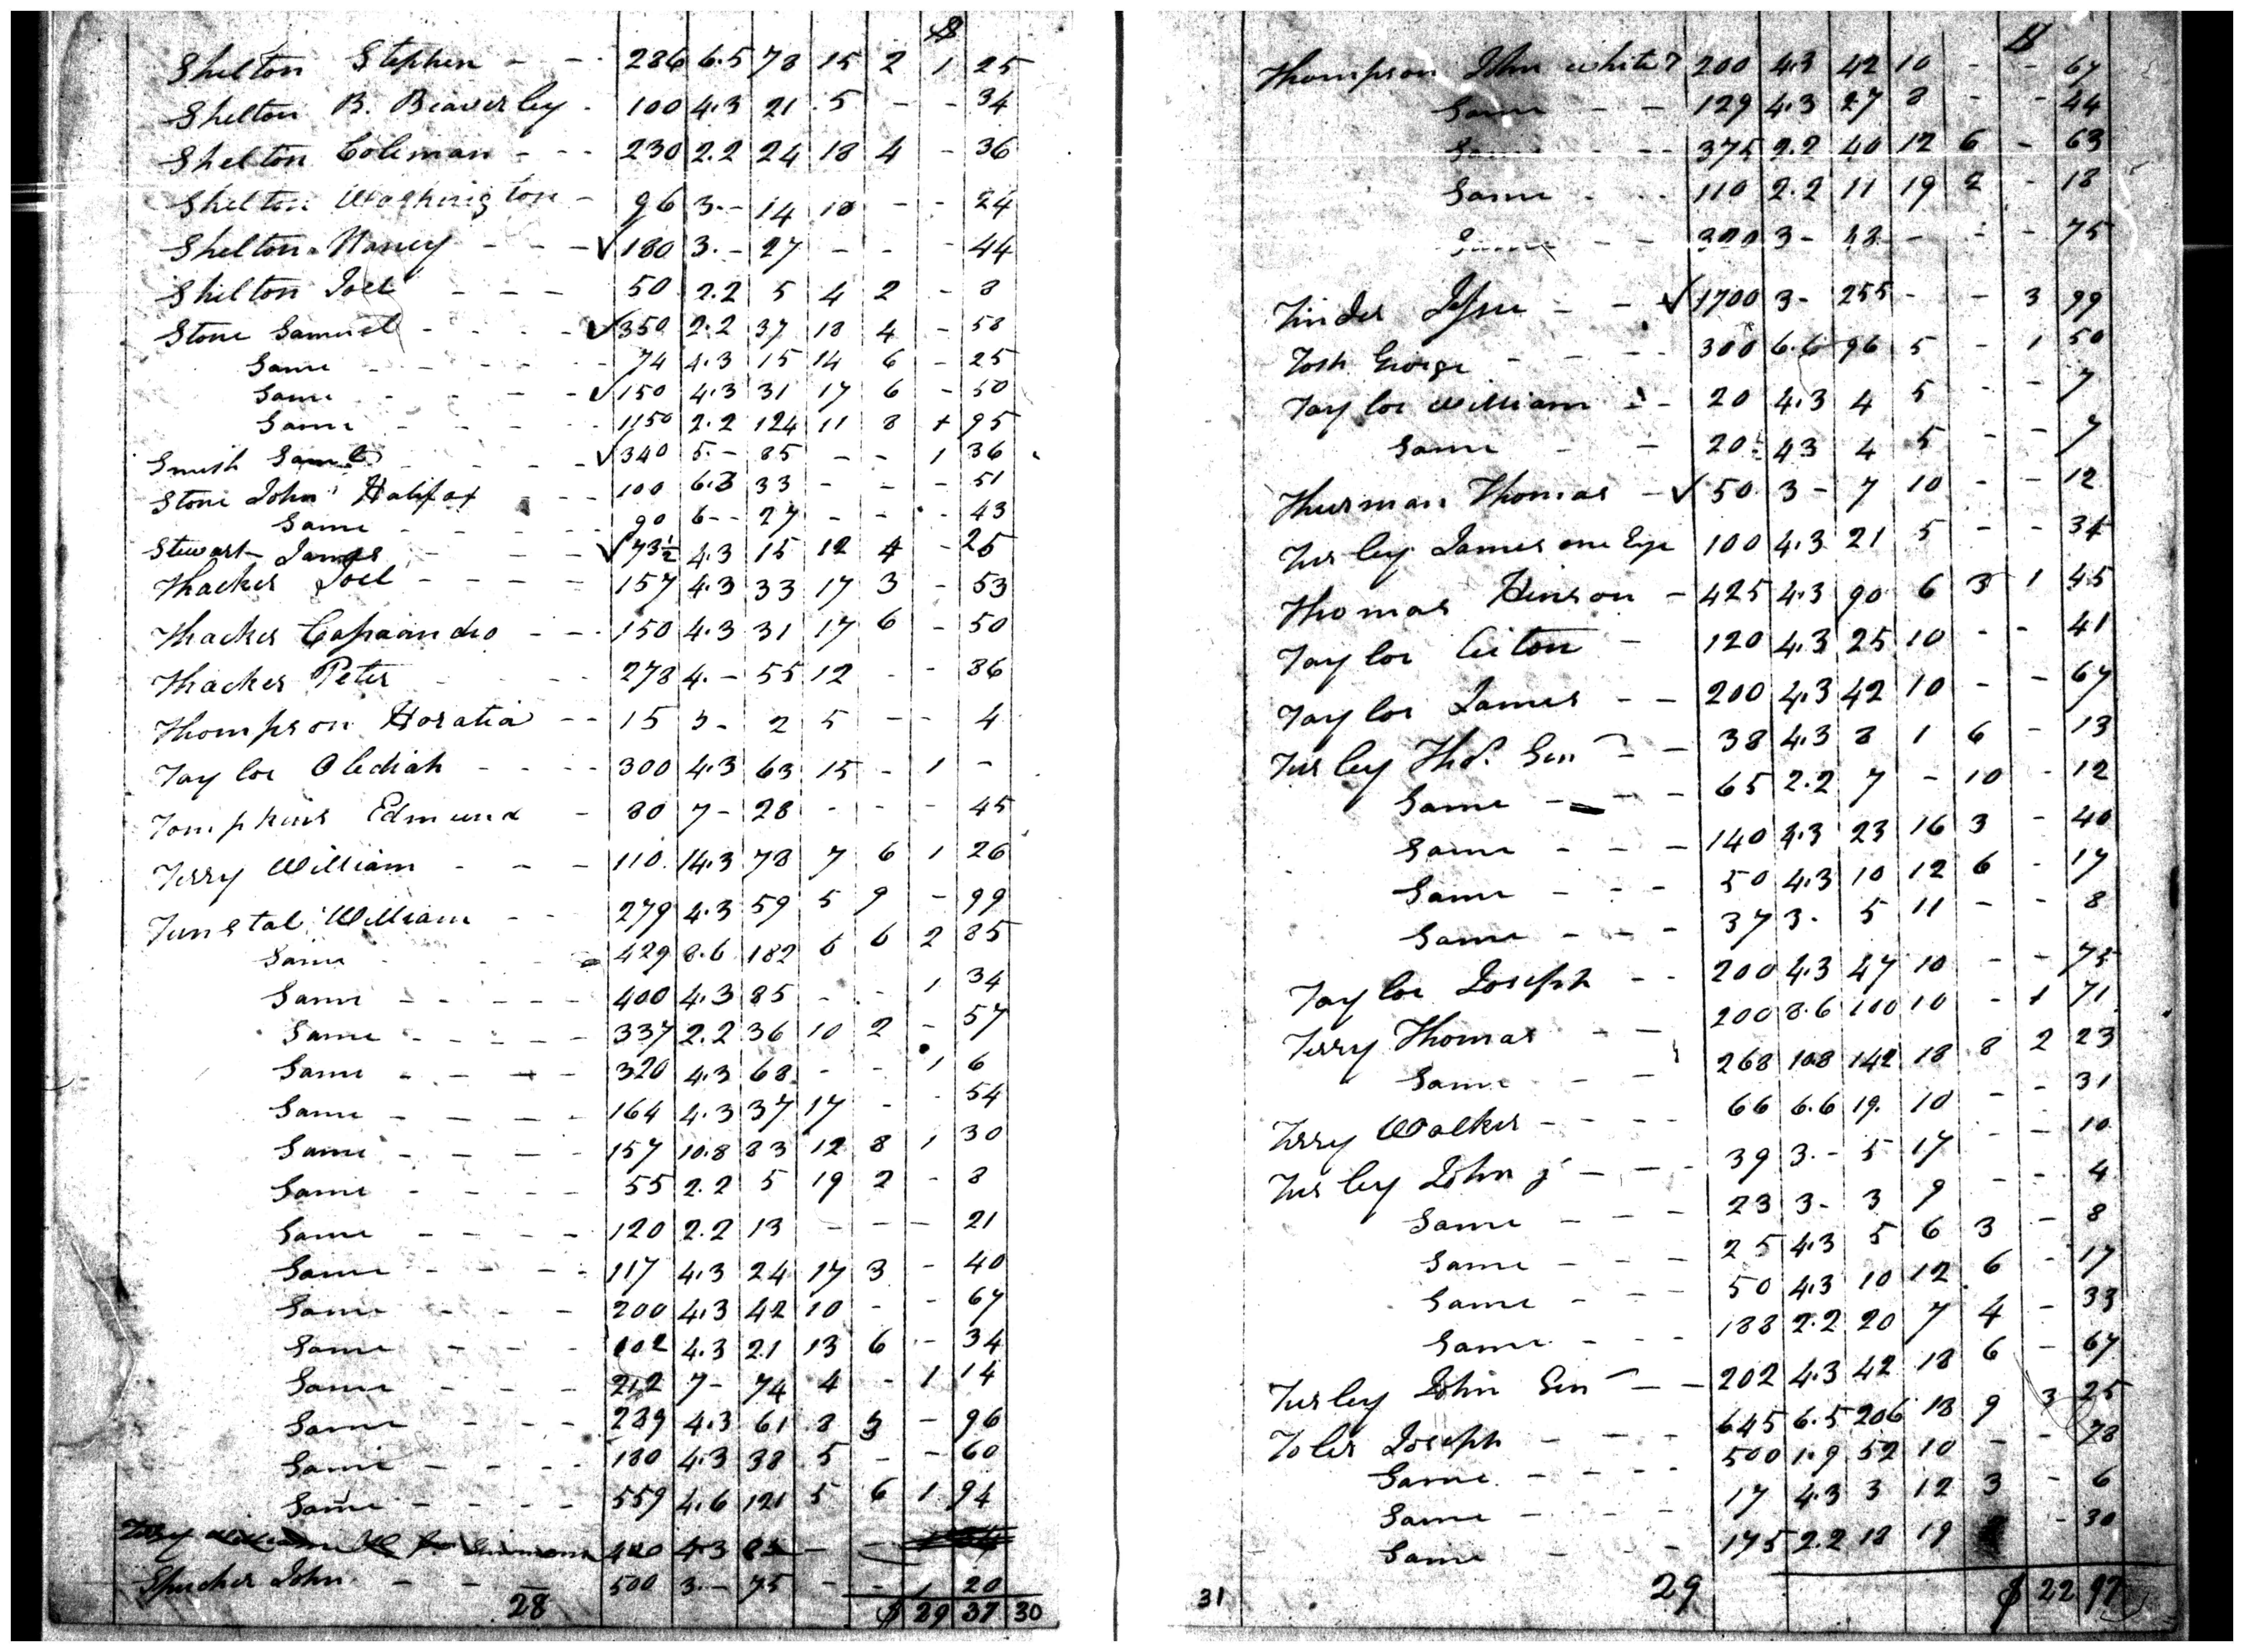 $
Shelton Stephen - - 286 6.5 78 15 2 1 25
Shelton B. Beaverley - 100 4.3 21 5 - - 34
Shelton Coleman - - - 230 2.2 24 18 4 - 36
Shelton Washington - 96 3.- 14 18 - - 24
Shelton Nancy - - - √ 180 3.- 27 - - - 44
Shelton Joel - - - 50 2.2 5 4 2 - 8
Stone Samuel - - - - √ 350 2.2 37 18 4 - 58
Same - - - - - 74 4.3 15 14 6 - 25
Same - - - - √ 150 4.3 31 17 6 - 50
Same - - - - 1150 2.2 124 11 8 1 95
Smith Saml - - - - √ 340 5.- 85 - - 1 36
Stone John Halifax - - - 100 6.8 33 - - - 51
Same - - - - 90 6-- 27 - - - 43
Stewart James - - - √ 73½ 4.3 15 12 4 - 25
Thacker Joel - - - - 157 4.3 33 17 3 - 53
Thacker - - - 150 4.3 31 17 6 - 50
Thacker Peter - - - - 278 4.- 55 12 - - 86
Thompson Horatia - - 15 3- 2 5 - - 4
Taylor Obediah - - - - 300 4.3 63 15 - 1 -
Tompkins Edmund - 80 7- 28 - - - 45
Terry William - - - 110 14.3 78 7 6 1 26
Tunstal William - - 279 4.3 59 5 9 - 99
Same - - - - 429 8.6 182 6 6 2 85
Same - - - - - 400 4.3 85 - - 1 34
Same - - - - - 337 2.2 36 10 2 - 57
Same - - - - 320 4.3 68 - - 1 6
Same - - - - 164 4.3 37 17 - - 54
Same - - - - 157 10.8 83 12 8 1 30
Same - - - - 55 2.2 5 19 2 - 8
Same - - - - 120 2.2 13 - - - 21
Same - - - - 117 4.3 24 17 3 - 40
Same - - - 200 4.3 42 10 - - 67
Same - - - 102 4.3 21 13 6 - 34
Same - - - 212 7- 74 4 - 1 14
Same - - - 289 4.3 61 8 3 - 96
Same - - - - 180 4.3 38 5 - - 60
Same - - - - 559 4.6 121 5 6 1 94
Terry 400 4.3 85 - -
John - - - 500 3.- 75 - - 1 20
28 $ 29 37 30
$
Thompson John white 200 4.3 42 10 - - 67
Same - - 129 4.3 27 8 - - 44
Same - - 375 2.2 40 12 6 - 63
Same - - 110 2.2 11 19 2 - 18
Same - - 320 3- 48 - - - 75
Tinder Jesse - - √ 1700 3- 255 - - 3 99
Tosh George - - - - 300 6.6 96 5 - 1 50
Taylor William - - 20 4.3 4 5 - - 7
Same - - 20 43 4 5 - - 7
Thurman Thomas - √ 50 3- 7 10 - - 12
Tusley James one Eye 100 4.3 21 5 - - 34
Thomas Hinson - 425 4.3 90 6 3 1 45
Taylor - 120 4.3 25 10 - - 41
Taylor James - - 200 4.3 42 10 - - 67
Tusley Thos. Sen - - 38 4.3 8 1 6 - 13
Same - - - 65 2.2 7 - 10 - 12
Same - - - 140 4.3 23 16 3 - 40
Same - - - 50 4.3 10 12 6 - 17
Same - - - 37 3- 5 11 - - 8
Taylor Joseph - - 200 4.3 47 10 - - 75
Terry Thomas - - 200 8.6 100 10 - 1 71
Same - - 268 10.8 142 18 8 2 23
Terry Walker - - - - 66 6.6 19. 10 - - 31
Tusley John j - - - 39 3.- 5 17 - - 10
Same - - - 23 3- 3 9 - - 4
Same - - - 25 4.3 5 6 3 - 8
Same - - - 50 4.3 10 12 6 - 17
Same - - - 188 2.2 20 7 4 - 33
Tusley John Sen - - 202 4.3 42 18 6 - 67
Toler Joseph - - - 645 6.5 206 18 9 3 25
Same - - - - 500 1.9 52 10 - - 78
Same - - - - 17 4.3 3 12 3 - 6
Same - - - 175 2.2 18 19 - 30
31 29 $ 22 97